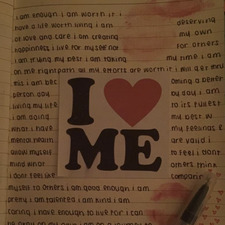 i am enough i am worth it i
have a life worth living i am deserving
of love and care i am creating my own
happiness i live for myself not for others
i am trying my best i am taking my time i am
on the right path all my efforts are worth it i
this i am becoming a better
person day by day i am
living my life to its fullest
i am doing my best w
what i have my feelings &
mental health are valid i
about myself to feel i dont
mind what others think
i dont feel like comparing
myself to others i am good enough i am
pretty i am talented i am kind i am
caring i have enough to live for i can
I ♥
ME